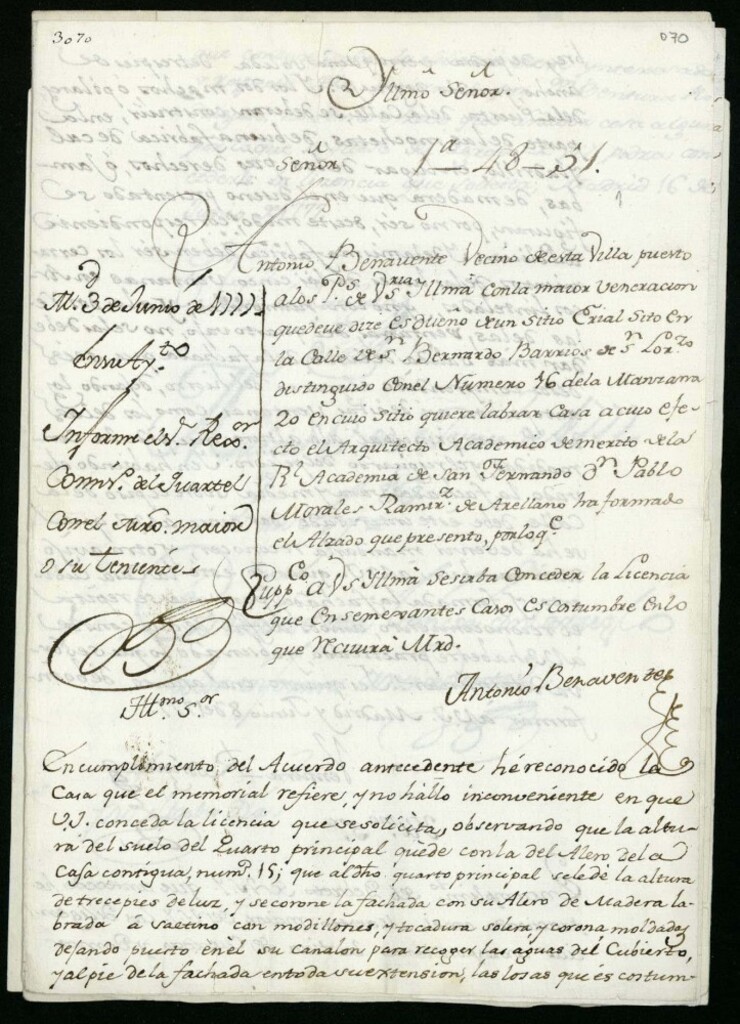 3070
070
Yllmô Señor.
Señor
1ª - 48 - 51.
Antonio Benavente Vecino de esta Villa puesto
a los Pˢ. de Vˢ Yllmâ con la maior Veneracion
que deve dize es dueño de un Sitio Erial Sito En
la Calle de Sⁿ. Bernardo Barrios de Sⁿ Lorᶻᵒ
distinguido Con el Numero 16 de la Manzana
20 En cuio Sitio quiere labrar Casa a cuio efe-
cto el Arquitecto Academico de merito de la
Rˡ Academia de San Fernando Dⁿ Pablo
Morales Ramirᶻ. de Arellano ha formado
el Alzado que presento, por lo qᵉ.
Suppᶜᵒ a Vˢ Yllmâ se sirba Conceder la Licencia
que En semexantes Casos Es Costumbre En lo
que Recivirà Mrd.
Antonio Benavente
Mᵈ. 3 de Junio de
En su Ayᵗᵒ
Informe el Sʳ. Rexᵒʳ
Comisº. del Quartel
Con el Mrô. maior
o su teniente
Illᵐᵒ Sᵒʳ
En cumplimiento, del Acuerdo antecedente hé reconocido la
Casa que el memorial refiere, y no hallo inconveniente en que
V.I. conceda la licencia que se solicita, observando que la altu-
ra del suelo del Quarto principal quede con la del Alero de la
Casa contigua, numº. 15; que al dhô quarto principal se le dé la altura
de trece pies de luz, y se corone la fachada con su Alero de Madera la-
brada à saetino con modillones, y tocadura solera y corona moldadas
dejando puesto en el su canalon para recoger las aguas del Cubierto,
y al pie de la fachada en toda su extension, las losas que es costum-